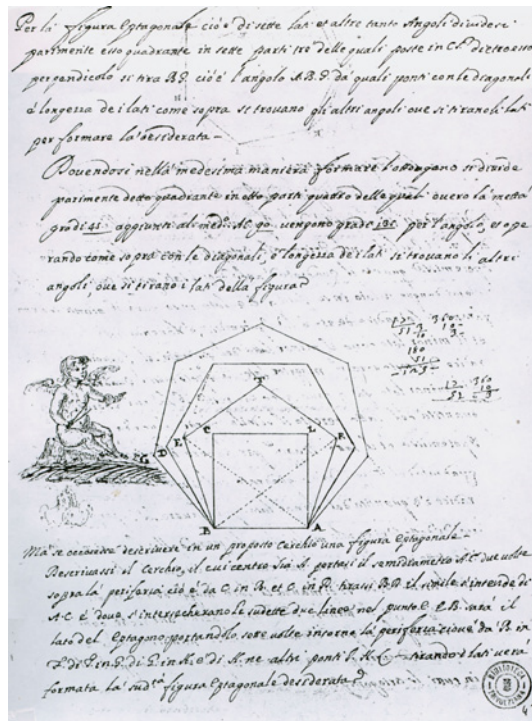 Per la figura Eptagonale cioè di sette lati et altre tanto Angoli dividesi
parimente esso quadrante in sette parti tre delle quali poste in
perpendicolo si tira B. cioè l'angolo A.B. da quali ponti con le diagonale
è longezza de i lati come sopra si trovano gli altri angoli ove si tirano li lati
per formare la desiderata
Dovendosi nella medesima maniera formare l'ottongono si divide
parimente detto quadrante in otto parti quadro delle quali overo la metta
gradi 45 aggiunti al med.º AC 90 vengono gradi 135 per l'angolo, et ope
rando come sopra con le diagonali, e longezza de i lati si trovano li altri
angoli, ove si tirano i lati della figura
T
G D E C L R
B A
Ma se occorre descrivere in un proposto Cerchio una figura Eptagonale
Descrivassi il Cerchio, il cui centro sia A. portasi il semidiametro A.C due volte
sopra la periferia cioè da C. in B. et C. in D. tirassi B.D. il simile s'intende di
A.C è dove s'intersecherano le sudette due linee nel punto E. E.B. sarà il
lato del Eptagono portandolo sette volte intorno la periferia cioè da B. in
ne altri ponti tirando i lati vera
formata la sud.ta figura Eptagonale desiderata